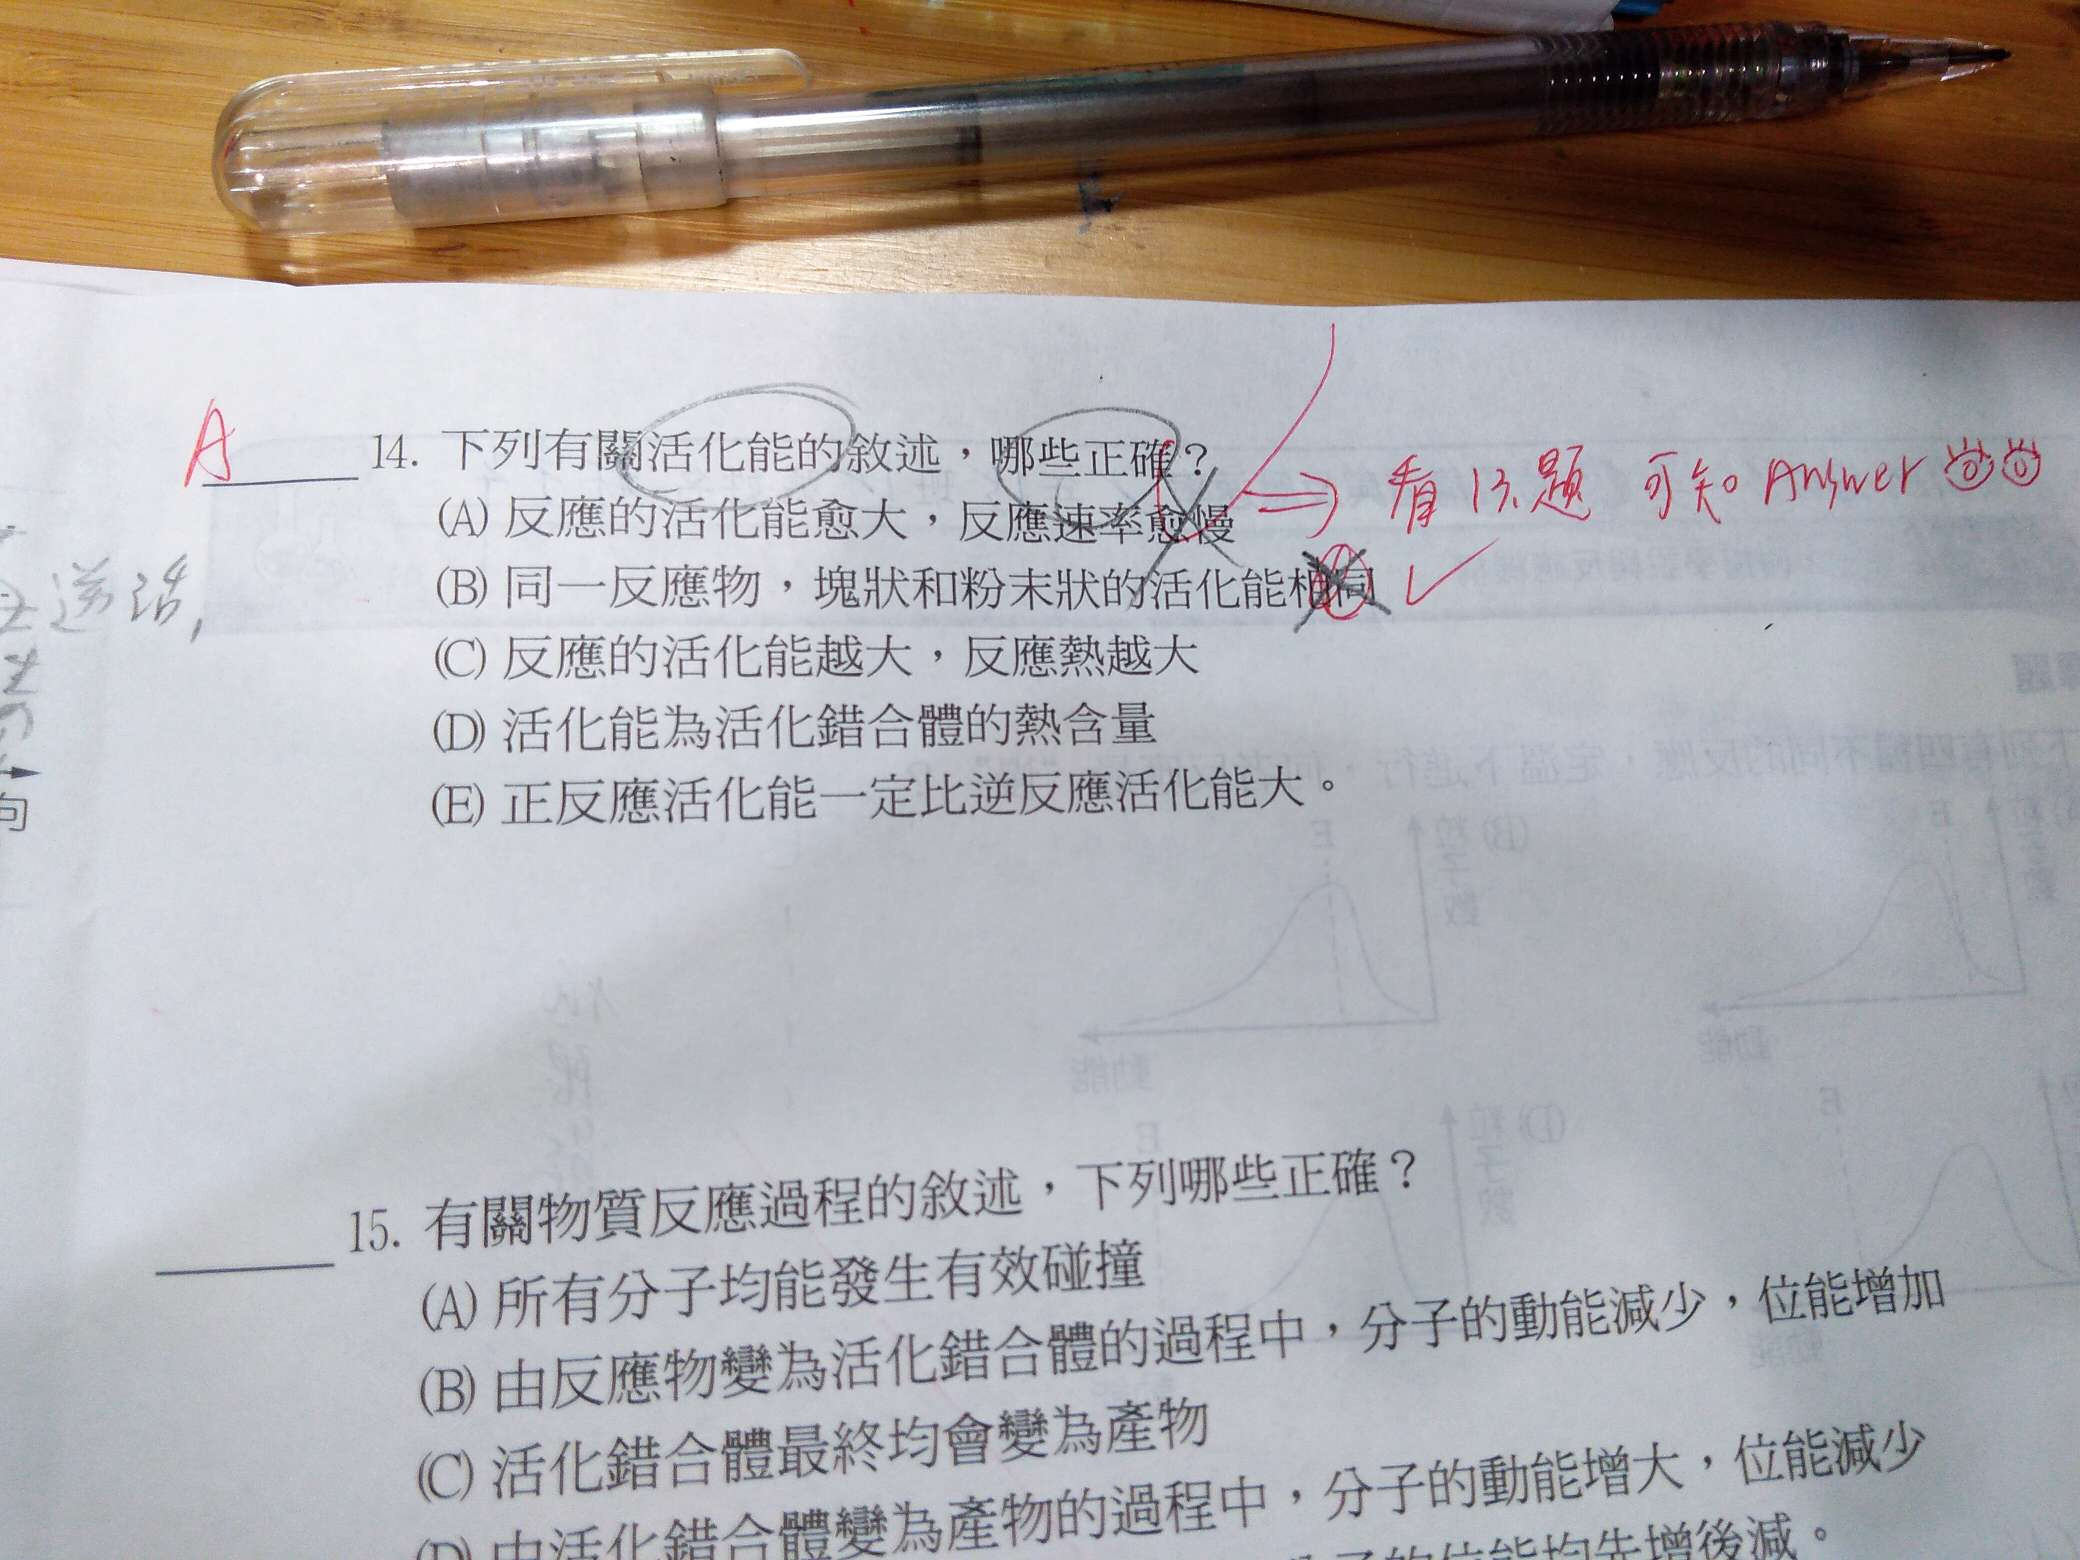 A 14. 下列有關活化能的敘述，哪些正確？
(A) 反應的活化能愈大，反應速率愈慢
⇒ 看 13.題 可知 Answer
(B) 同一反應物，塊狀和粉末狀的活化能相同
(C) 反應的活化能越大，反應熱越大
(D) 活化能為活化錯合體的熱含量
(E) 正反應活化能一定比逆反應活化能大。
15. 有關物質反應過程的敘述，下列哪些正確？
(A) 所有分子均能發生有效碰撞
(B) 由反應物變為活化錯合體的過程中，分子的動能減少，位能增加
(C) 活化錯合體最終均會變為產物
(D) 由活化錯合體變為產物的過程中，分子的動能增大，位能減少
分子的位能均先增後減。